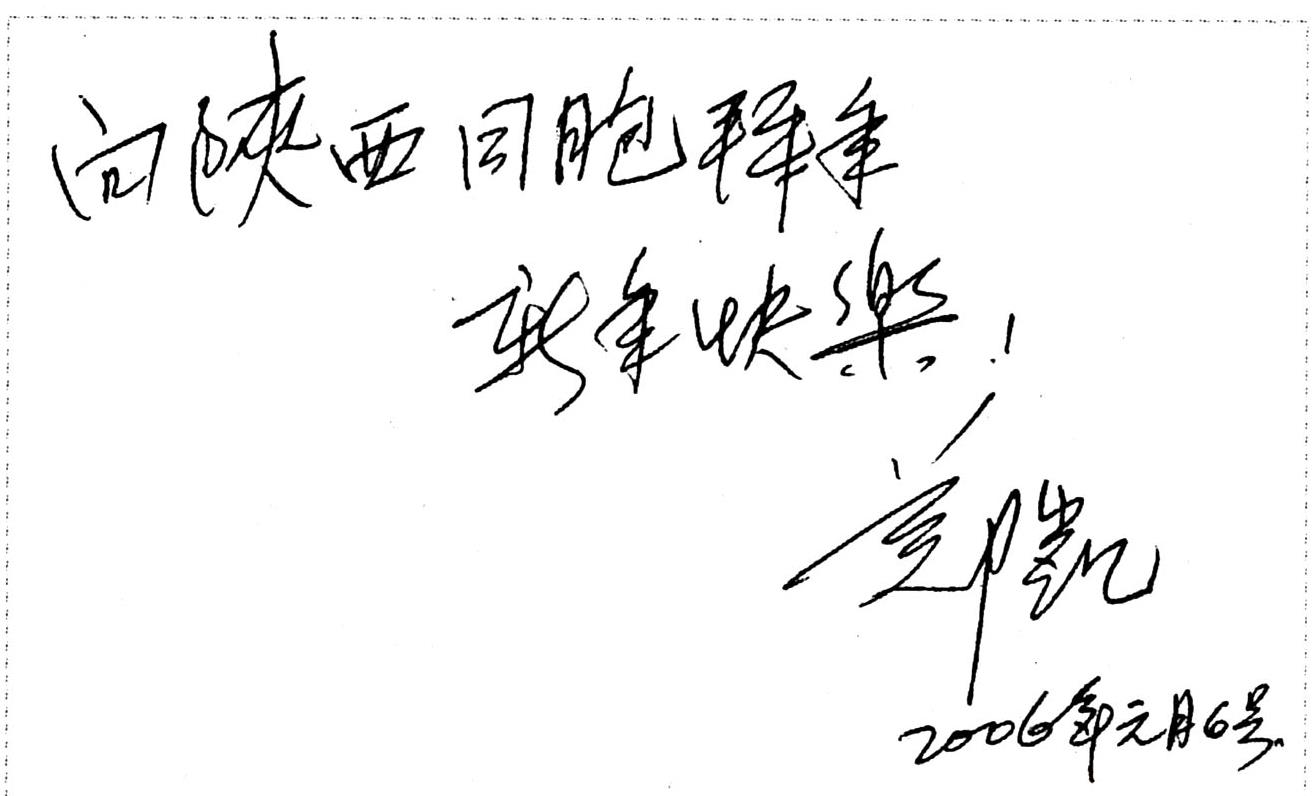 向陝西同胞拜年
新年快樂！
鄭凱
2006年元月6号.